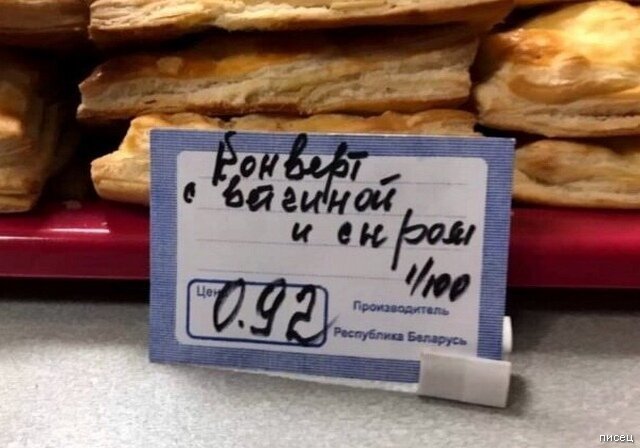 Конверт
с вагиной
и сыром
1/100
Цен
0.92
Производитель
Республика Беларусь
писец